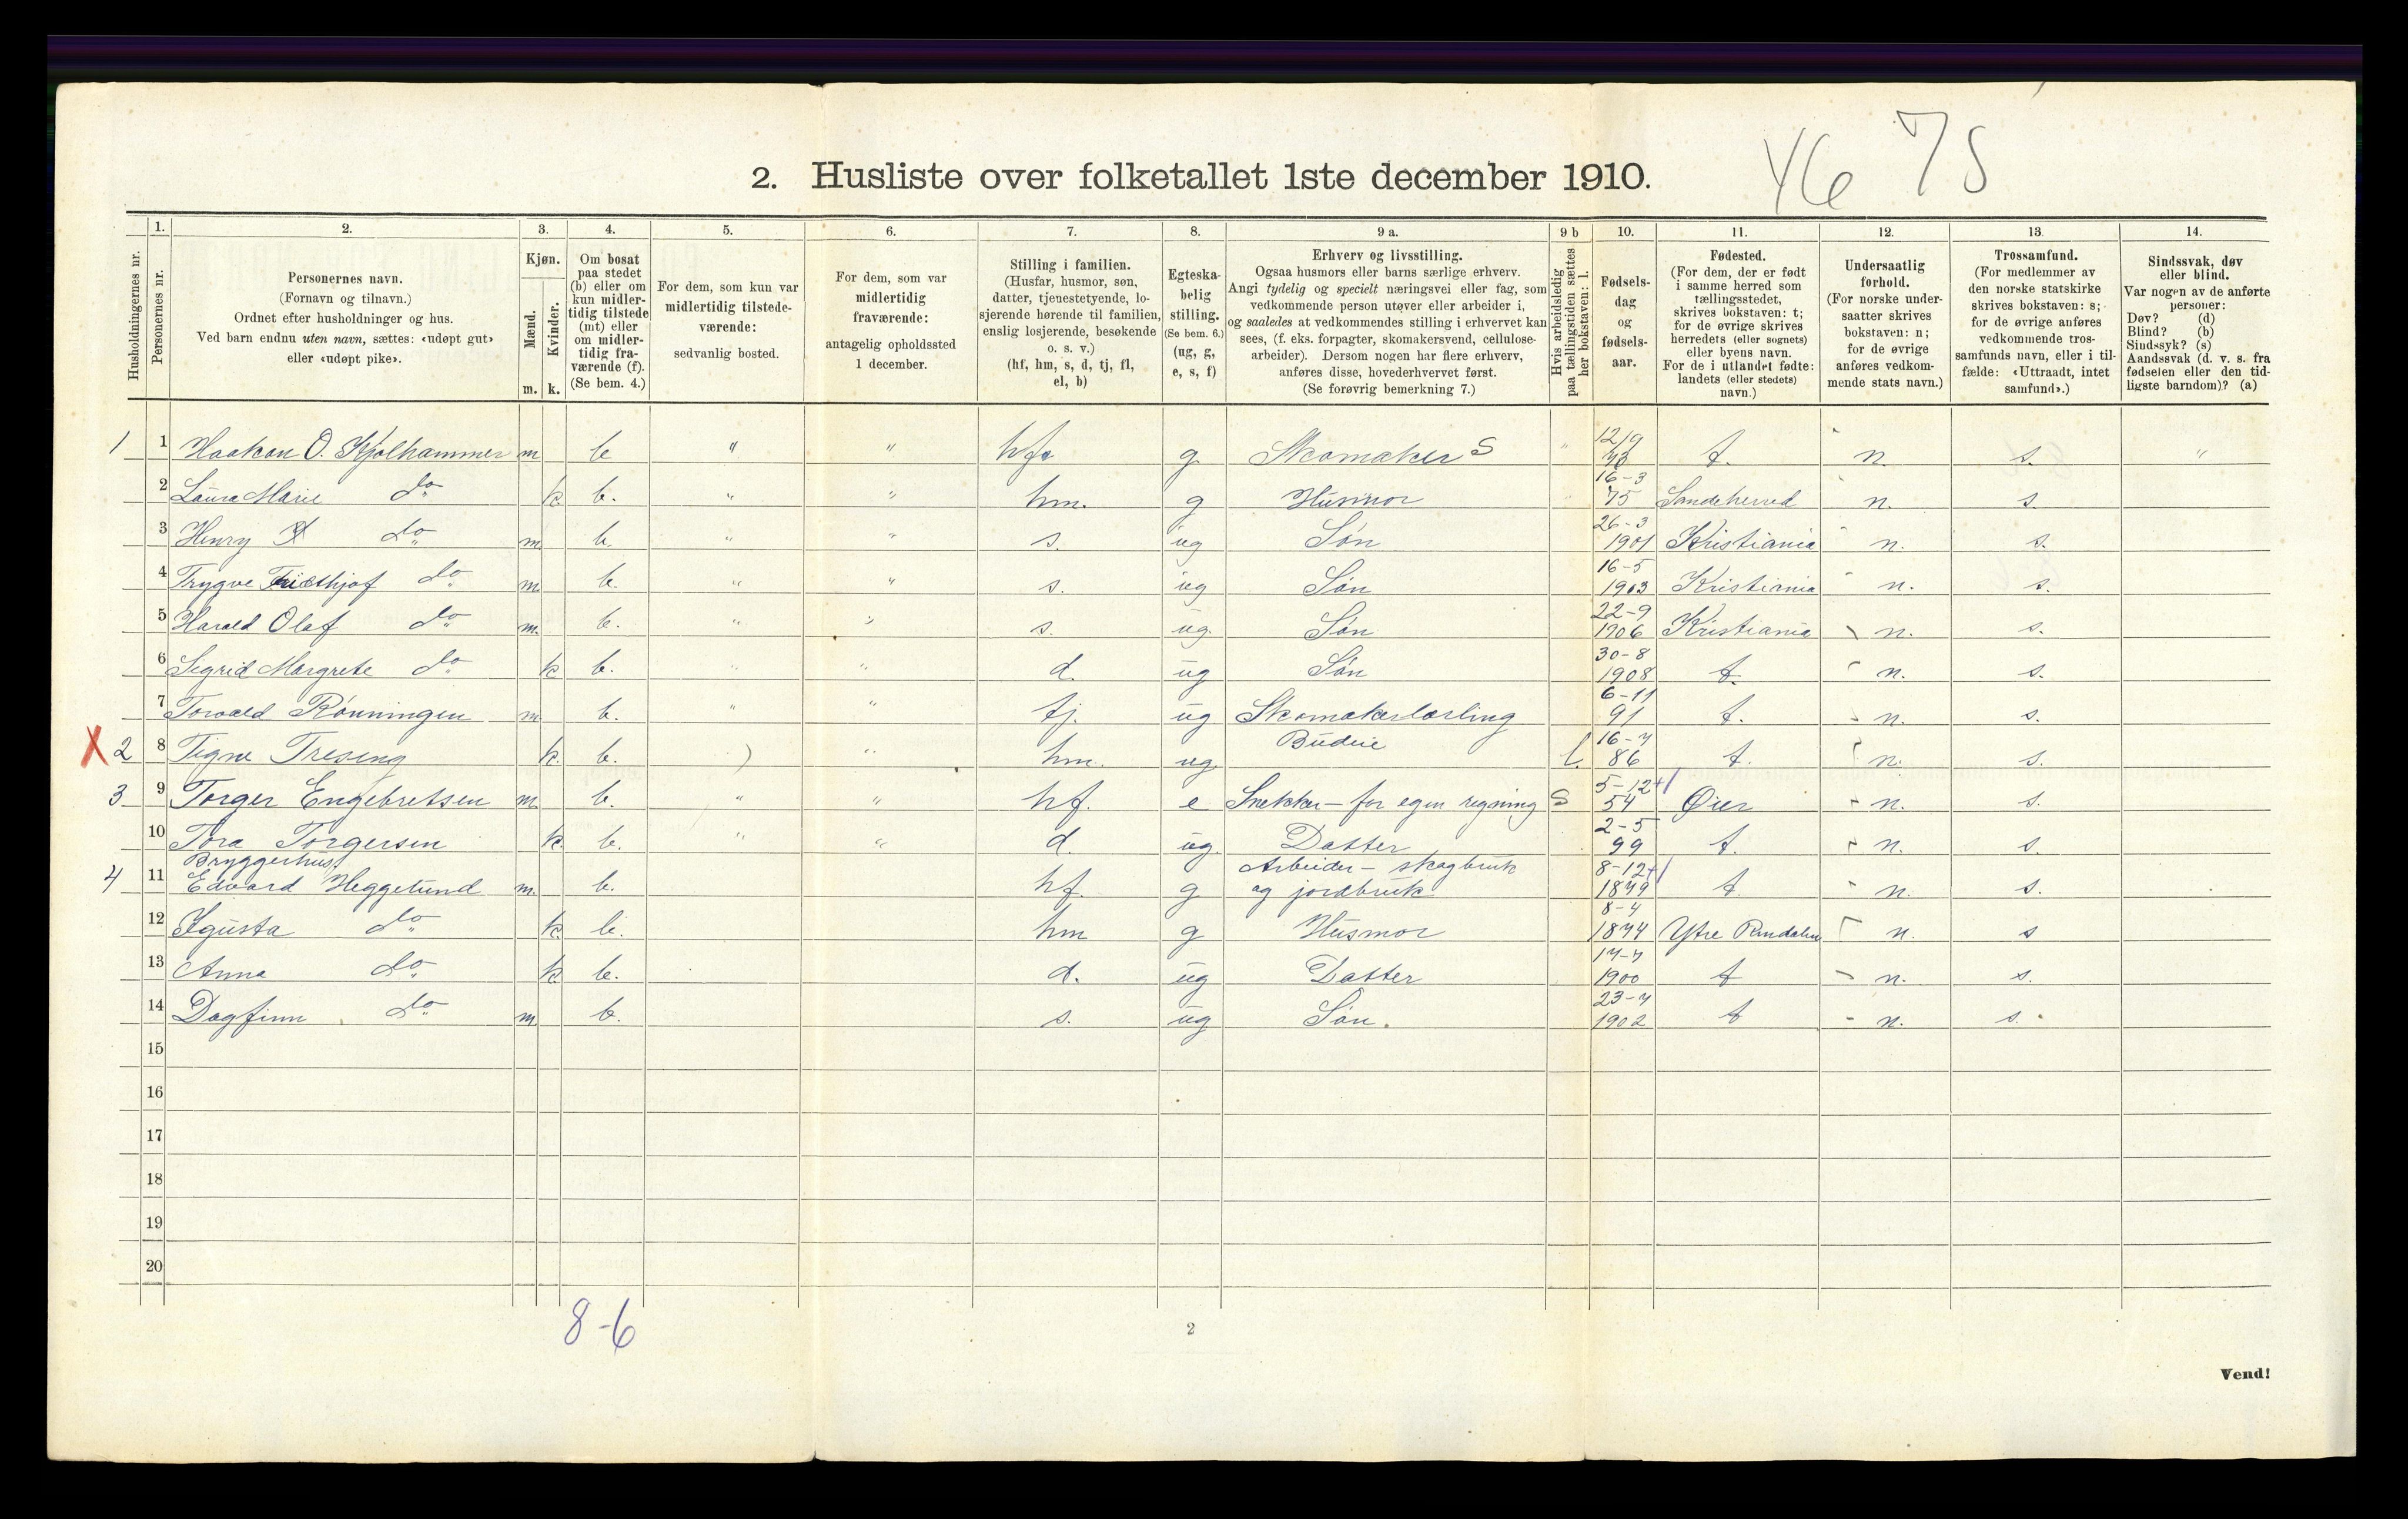 46 75
2. Husliste over folketallet 1ste december 1910.
Husholdningernes nr.
1.
Personernes nr.
2.
Personernes navn.
(Fornavn og tilnavn.)
Ordnet efter husholdninger og hus.
Ved barn endnu uten navn, sættes: «udøpt gut»
eller «udøpt pike».
3.
Kjøn.
Mænd.
Kvinder.
m. k.
4.
Om bosat
paa stedet
(b) eller om
kun midler-
tidig tilstede
(mt) eller
om midler-
tidig fra-
værende (f).
(Se bem. 4.)
5.
For dem, som kun var
midlertidig tilstede-
værende:
sedvanlig bosted.
6.
For dem, som var
midlertidig
fraværende:
antagelig opholdssted
1 december.
7.
Stilling i familien.
(Husfar, husmor, søn,
datter, tjenestetyende, lo-
sjerende hørende til familien,
enslig losjerende, besøkende
o. s. v.)
(hf, hm, s, d, tj, fl,
el, b)
8.
Egteska-
belig
stilling.
(Se bem. 6.)
(ug, g,
e, s, f)
9 a.
Erhverv og livsstilling.
Ogsaa husmors eller barns særlige erhverv.
Angi tydelig og specielt næringsvei eller fag, som
vedkommende person utøver eller arbeider i,
og saaledes at vedkommendes stilling i erhvervet kan
sees, (f. eks. forpagter, skomakersvend, cellulose-
arbeider). Dersom nogen har flere erhverv,
anføres disse, hovederhvervet først.
(Se forøvrig bemerkning 7.)
9 b
Hvis arbeidsledig
paa tællingstiden sættes
her bokstaven: l.
10.
Fødsels-
dag
og
fødsels-
aar.
11.
Fødested.
(For dem, der er født
i samme herred som
tællingsstedet,
skrives bokstaven: t;
for de øvrige skrives
herredets (eller sognets)
eller byens navn.
For de i utlandet fødte:
landets (eller stedets)
navn.)
12.
Undersaatlig
forhold.
(For norske under-
saatter skrives
bokstaven: n;
for de øvrige
anføres vedkom-
mende stats navn.)
13.
Trossamfund.
(For medlemmer av
den norske statskirke
skrives bokstaven: s;
for de øvrige anføres
vedkommende tros-
samfunds navn, eller i til-
fælde: «Uttraadt, intet
samfund».)
14.
Sindssvak, døv
eller blind.
Var nogen av de anførte
personer:
Døv? (d)
Blind? (b)
Sindssyk? (s)
Aandssvak (d. v. s. fra
fødselen eller den tid-
ligste barndom)? (a)
1 1 Haakon O. Kjølhammer m b " " hf. g. Skomaker S " 12/9 t. n. s. "
2 Laura Marie do k b. " " hm. g Husmor 16-3 75 Sandeherred n. s.
3 Henry do m. b. " " s. ug Søn 26-3 1901 Kristiania n. s.
4 Trygve do m. b. " " s. ug Søn 16-5 1903 Kristiania n. s.
5 Harald Olaf do m. b. " " s. ug. Søn 22-9 1906 Kristiania n. s.
6 Sigrid Margrete do k b. " " d. ug Søn 30-8 1908 t. n. s.
7 Torvald Rønningen m. b. " " tj. ug Skomakerlærling 6-11 91 t. n. s.
X 2 8 Signe Treseng k. b. hm. ug. Budeie l. 16-7 86 t. n. s.
3 9 Torger Engebretsen m. b. " " hf. e Snekker – for egen regning S 5-12 54 Øier n. s.
10 Tora Torgersen k. b. " " d. ug. Datter 2-5 99 t. n. s.
Bryggerhus
4 11 Edvard Heggelund m. b. hf. g Arbeider – skogbruk
og jordbruk 8-12 1879 t. n. s.
12 do k. b. hm g Husmor 8-4 1874 Ytre Rendalen n. s
13 Anna do k. b. d. ug Datter 17-7 1900 t n. s.
14 Dagfinn do m. b. s. ug Søn. 23-7 1902 t n. s.
15
16
17
18
19
20
8-6
2
Vend!